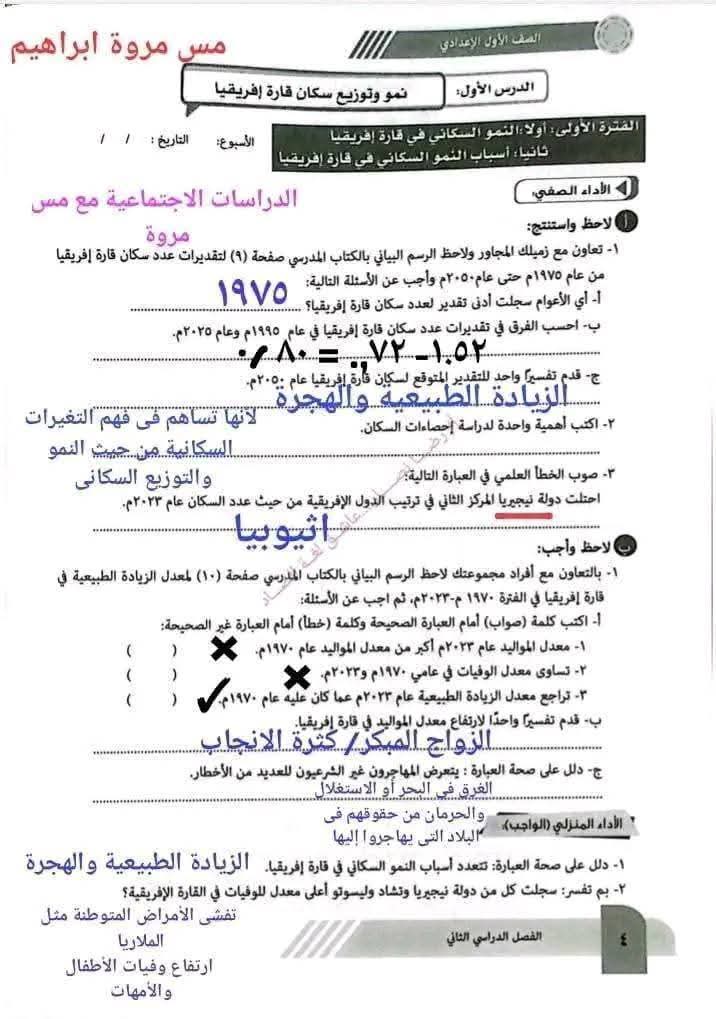 الصف الأول الإعدادي
مس مروة ابراهيم
الدرس الأول: نمو وتوزيع سكان قارة إفريقيا
الفترة الأولى: أولاً: النمو السكاني في قارة إفريقيا
ثانيا: أسباب النمو السكاني في قارة إفريقيا
الأسبوع: التاريخ: / /
الأداء الصفي:
الدراسات الاجتماعية مع مس
مروة
أ لاحظ واستنتج:
١- تعاون مع زميلك المجاور ولاحظ الرسم البياني بالكتاب المدرسي صفحة (٩) لتقديرات عدد سكان قارة إفريقيا
من عام ١٩٧٥م حتى عام ٢٠٥٠م وأجب عن الأسئلة التالية:
أ- أي الأعوام سجلت أدنى تقدير لعدد سكان قارة إفريقيا؟ ١٩٧٥
ب- احسب الفرق في تقديرات عدد سكان قارة إفريقيا في عام ١٩٩٥م وعام ٢٠٢٥م.
١.٥٢ – ٧٢,. = ٨٠,٠
ج- قدم تفسيرًا واحد للتقدير المتوقع لسكان قارة إفريقيا عام ٢٠٥٠م.
الزيادة الطبيعية والهجرة
٢- اكتب أهمية واحدة لدراسة إحصاءات السكان.
لانها تساهم فى فهم التغيرات
السكانية من حيث النمو
والتوزيع السكانى
٣- صوب الخطأ العلمي في العبارة التالية:
احتلت دولة نيجيريا المركز الثاني في ترتيب الدول الإفريقية من حيث عدد السكان عام ٢٠٢٣م.
اثيوبيا
ب لاحظ وأجب:
١- بالتعاون مع أفراد مجموعتك لاحظ الرسم البياني بالكتاب المدرسي صفحة (١٠) لمعدل الزيادة الطبيعية في
قارة إفريقيا في الفترة ١٩٧٠ م-٢٠٢٣م، ثم اجب عن الأسئلة:
أ- اكتب كلمة (صواب) أمام العبارة الصحيحة وكلمة (خطأ) أمام العبارة غير الصحيحة:
١- معدل المواليد عام ٢٠٢٣م أكبر من معدل المواليد عام ١٩٧٠م. ✖ ( )
٢- تساوى معدل الوفيات في عامي ١٩٧٠م و٢٠٢٣م. ✖ ( )
٣- تراجع معدل الزيادة الطبيعية عام ٢٠٢٣م عما كان عليه عام ١٩٧٠م. ✓ ( )
ب- قدم تفسيرًا واحدًا لارتفاع معدل المواليد في قارة إفريقيا.
الزواج المبكر/ كثرة الانجاب
ج- دلل على صحة العبارة : يتعرض المهاجرون غير الشرعيون للعديد من الأخطار.
الغرق فى البحر أو الاستغلال
والحرمان من حقوقهم فى
البلاد التى يهاجروا إليها
الأداء المنزلي (الواجب):
١- دلل على صحة العبارة: تتعدد أسباب النمو السكاني في قارة إفريقيا. الزيادة الطبيعية والهجرة
٢- بم تفسر: سجلت كل من دولة نيجيريا وتشاد وليسوتو أعلى معدل للوفيات في القارة الإفريقية؟
تفشى الأمراض المتوطنة مثل
الملاريا
ارتفاع وفيات الأطفال
والأمهات
٤ الفصل الدراسي الثاني